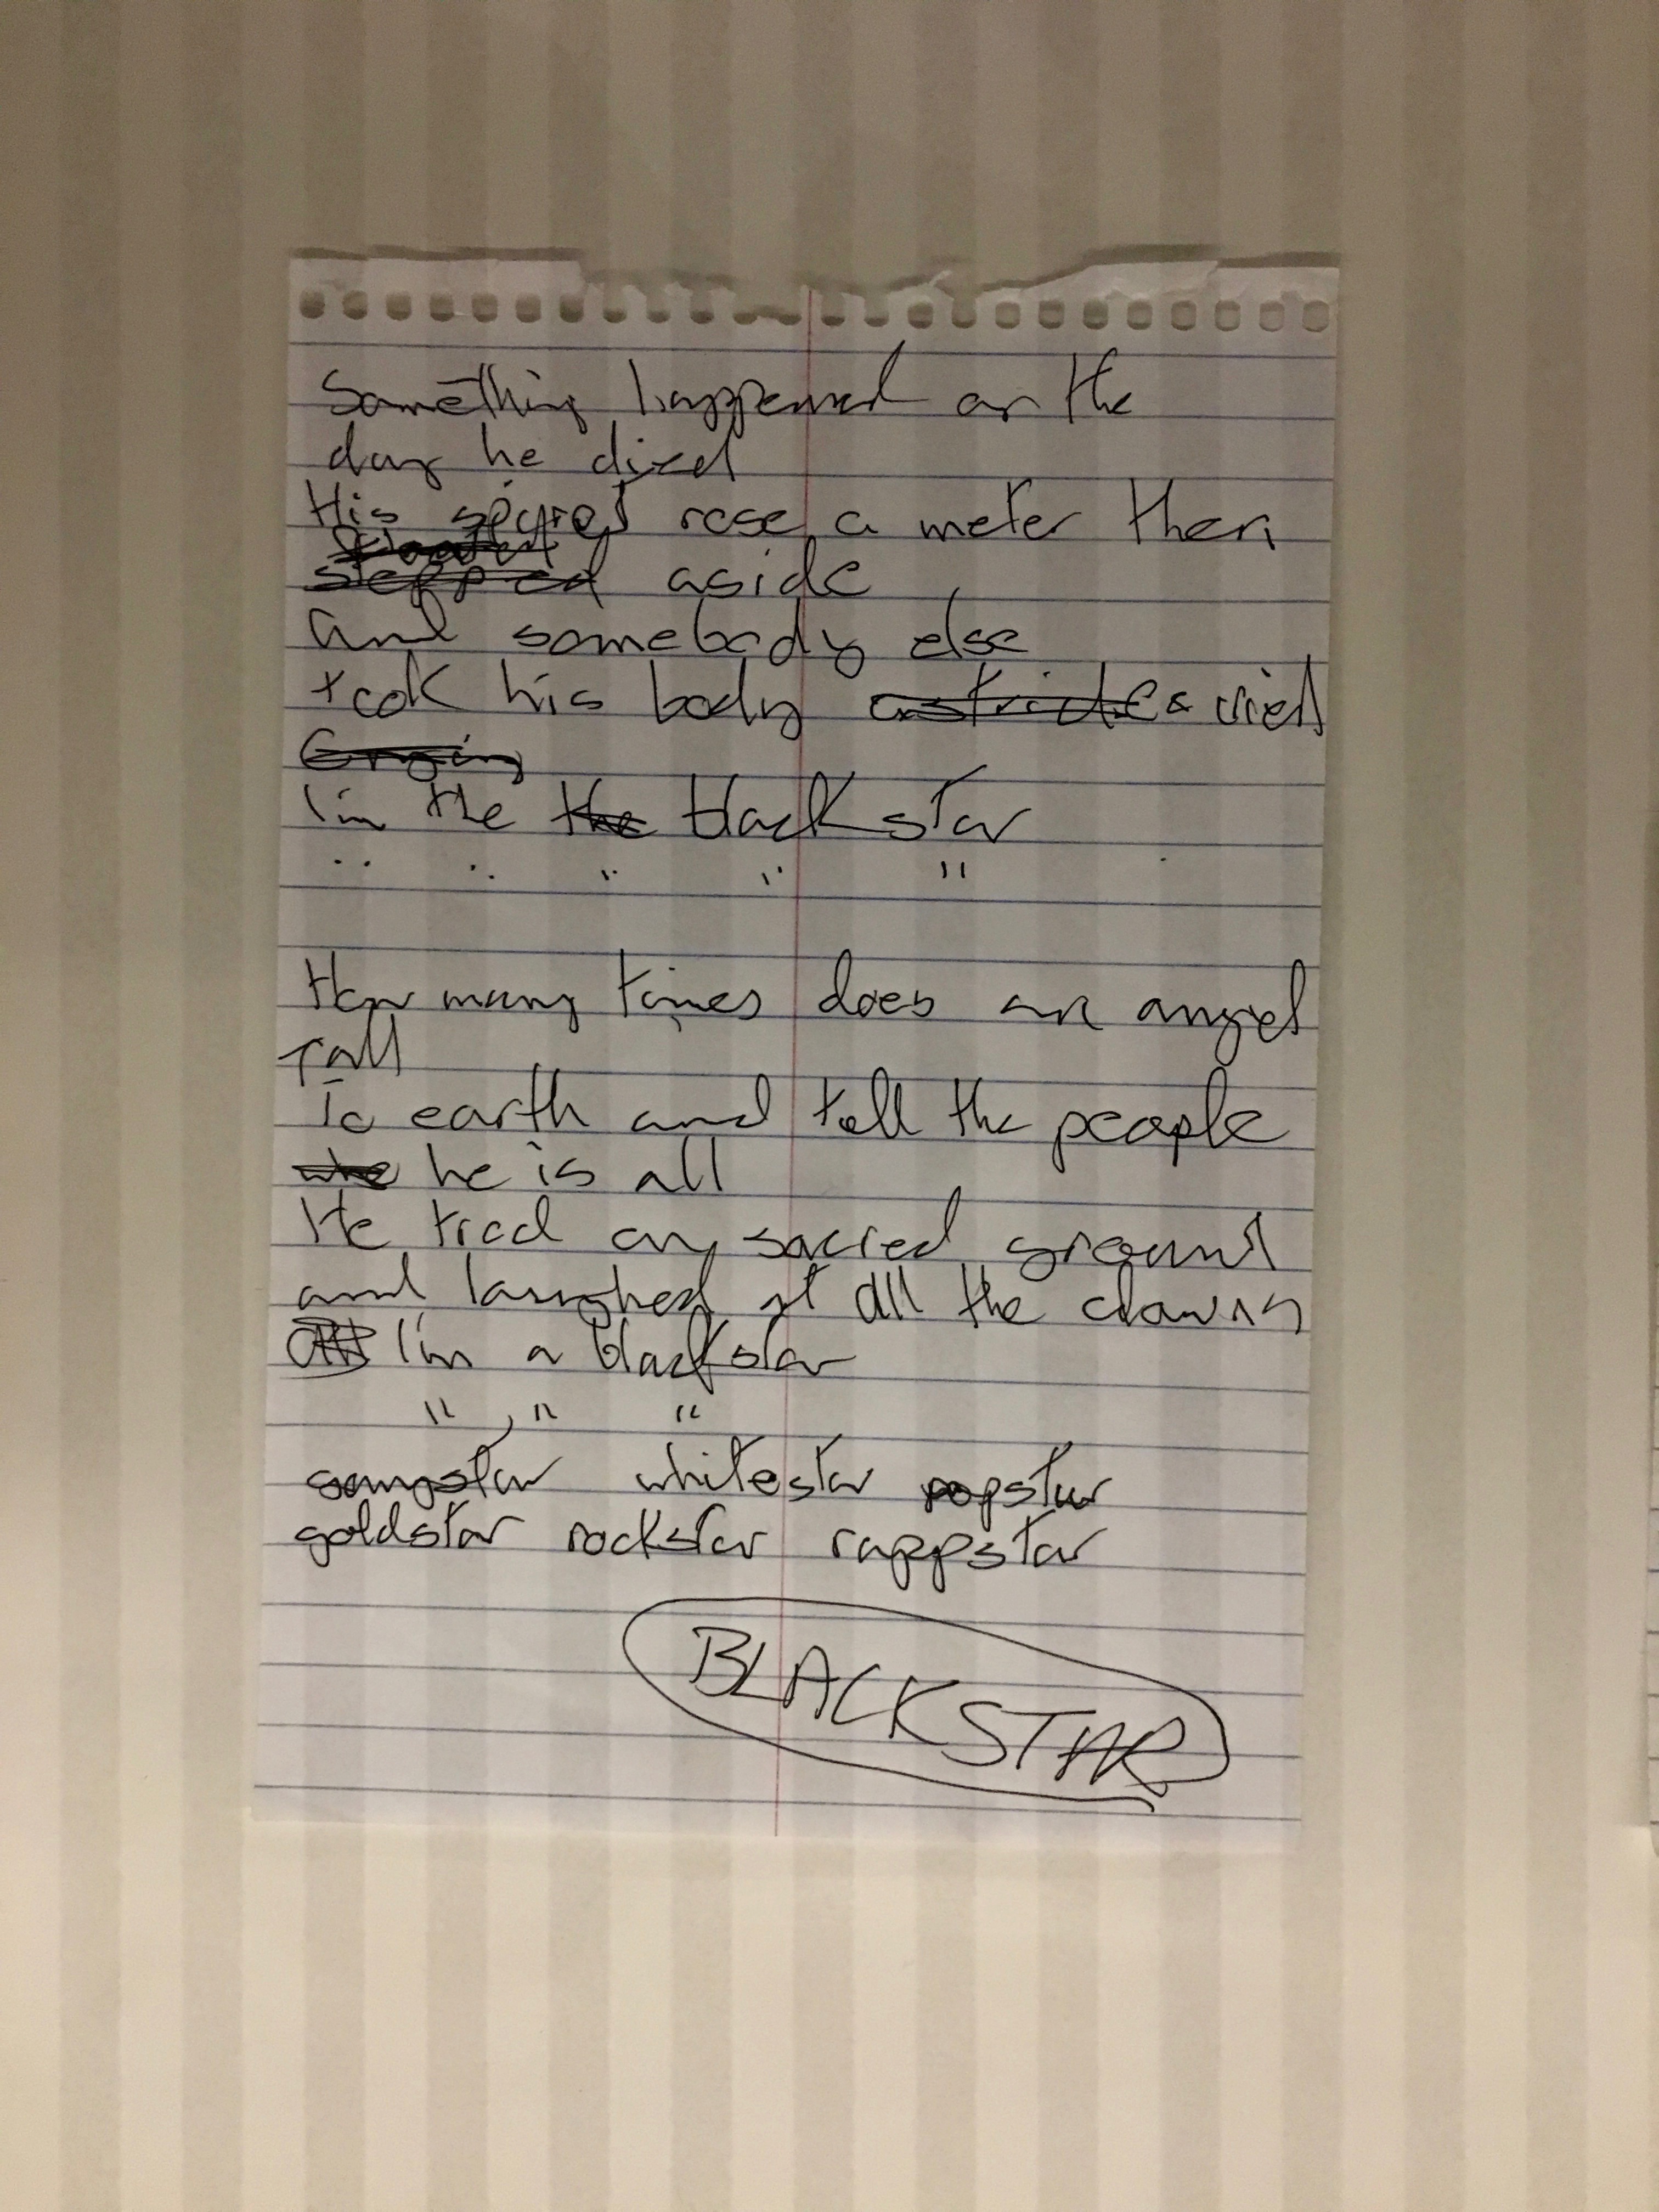 Something happened on the
day he died
His spirit rose a meter then
floated
stepped aside
And somebody else
took his body astride & cried
Crying
I'm the the blackstar
" " " " "
How many times does an angel
fall
To earth and tell the people
who he is all
He trod on sacred ground
and laughed at all the clowns
I'm a blackstar
" " "
gangstar whitestar popstar
goldstar rockstar rappstar
BLACKSTAR